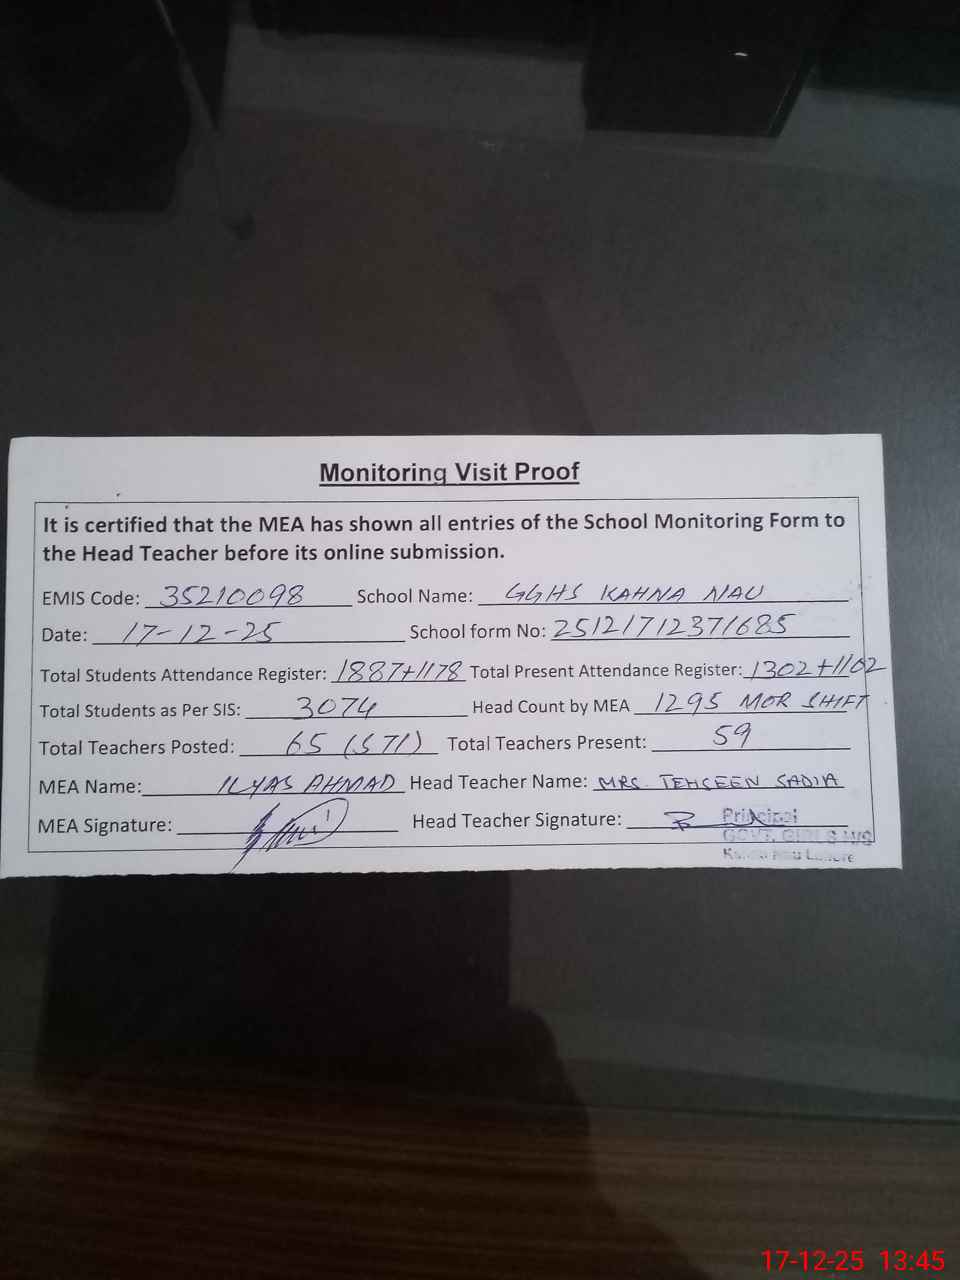 Monitoring Visit Proof
It is certified that the MEA has shown all entries of the School Monitoring Form to
the Head Teacher before its online submission.
EMIS Code: 35210098 School Name: GGHS KAHNA NAU
Date: 17-12-25 School form No: 25121712371685
Total Students Attendance Register: 1887+1178 Total Present Attendance Register: 1302+1102
Total Students as Per SIS: 3074 Head Count by MEA 1295 MOR SHIFT
Total Teachers Posted: 65 (STI) Total Teachers Present: 59
MEA Name: ILYAS AHMAD Head Teacher Name: MRS. TEHSEEN SADIA
MEA Signature: Head Teacher Signature: Principal
GOVT. GIRLS H/S
Kahna Nau Lahore
17-12-25 13:45